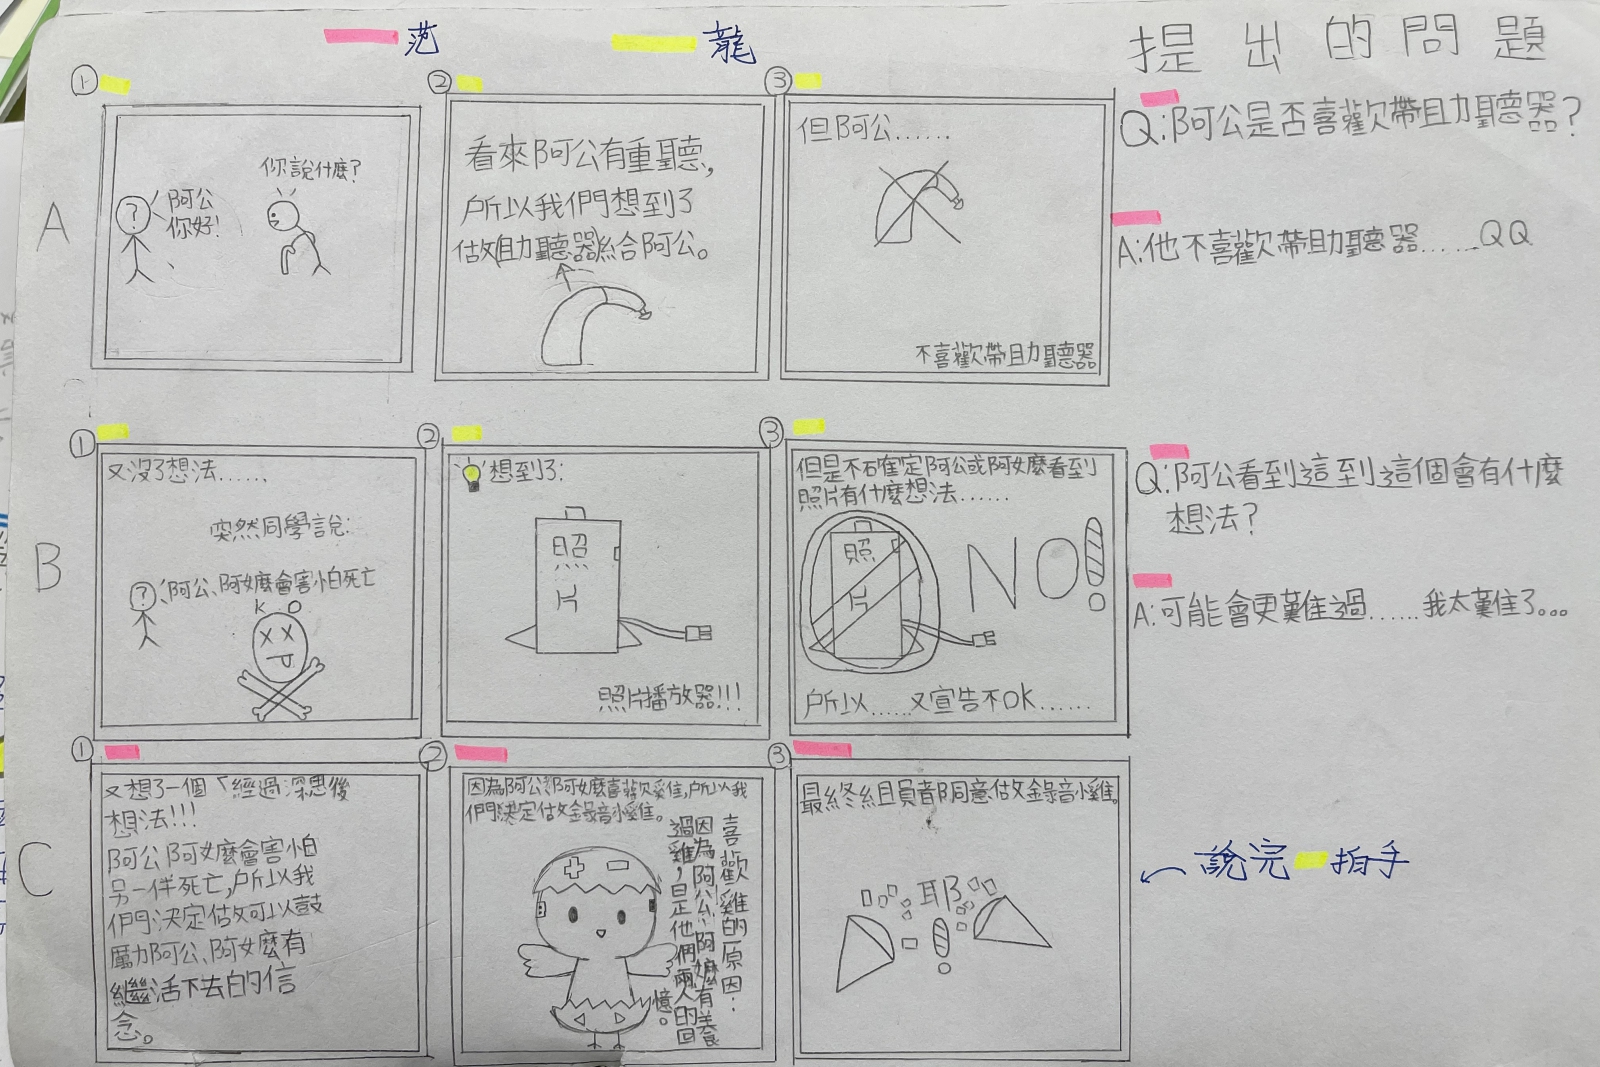 范 龍
提出的問題
A
①
阿公
你好!
你說什麼?
?
②
看來阿公有重聽,
所以我們想到了
做(助聽器)給阿公。
③
但阿公……
不喜歡帶助聽器
Q:阿公是否喜歡帶助聽器?
A:他不喜歡帶助聽器……QQ
B
①
又沒了想法……
突然同學說:
?
阿公、阿嬤會害怕死亡
KO
②
想到了:
照片
照片播放器!!!
③
但是不確定阿公或阿嬤看到
照片有什麼想法……
照片
NO!
所以……又宣告不OK……
Q:阿公看到這到這個會有什麼
想法?
A:可能會更難過……我太難了...
C
①
又想了一個「經過深思後
想法!!!
阿公阿嬤會害怕
另一伴死亡,所以我
們決定做可以鼓
勵阿公、阿嬤有
繼活下去的信
念。
②
因為阿公跟阿嬤喜歡雞,所以我
們決定做錄音小雞。
喜歡雞的原因:
因為阿公、阿嬤有養
過雞,是他們兩人的回
憶。
③
最終組員都同意做錄音小雞。
耶!
說完 拍手